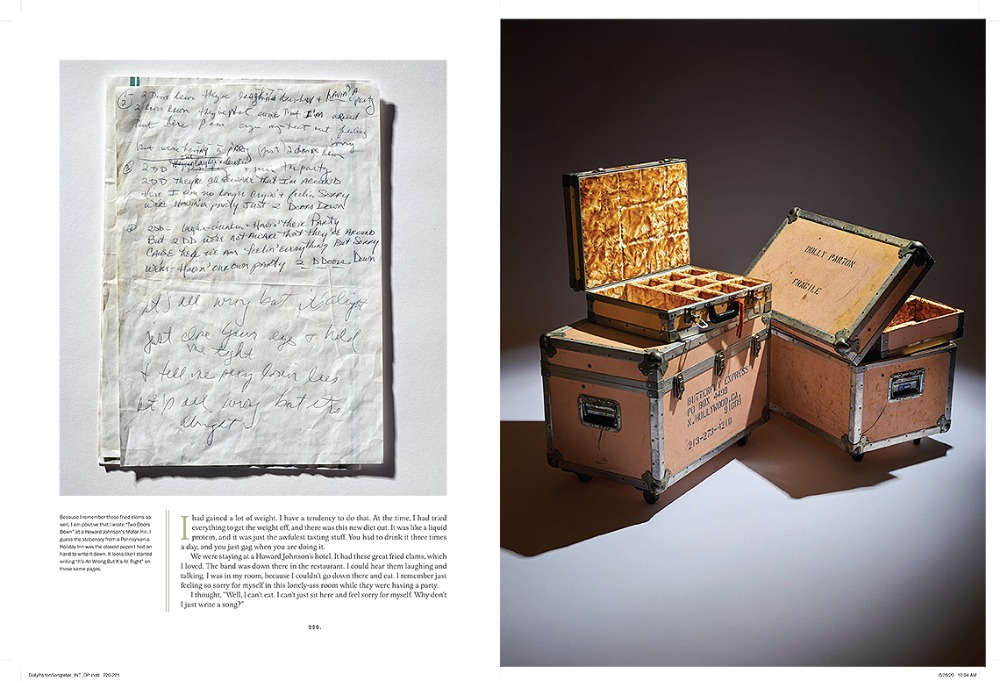 2 Doors Down they're laughin & drinkin' & havin' a party
2 Doors Down they're not aware that I'm around
but here I am cryin my heart out feelin
sorry
but were having a party just 2 doors down
2DD the party
2DD they're all aware that I'm AROUND
Here I am no longer cryin & feelin Sorry
We're Havin a party Just 2 Doors Down
2DD - laghn - drinkin - Havin' their Party
But 2 DD were not AWARE that they're AROUND
CAUSE here we Am feelin' everything But Sorry
Were - Havin' our own party 2 DDoors Down
it's all wrong but it's alright
Just close your eyes & hold
me tight
& tell me pretty lies
it's all wrong but its
alright
Because I remember those fried clams so
well, I am positive that I wrote "Two Doors
Down" at a Howard Johnson's Motor Inn. I
guess the stationary from a Pennsylvania
Holiday Inn was the closest paper I had on
hand to write it down. It looks like I started
writing "It's All Wrong But It's All Right" on
those same pages.
I had gained a lot of weight. I have a tendency to do that. At the time, I had tried
everything to get the weight off, and there was this new diet out. It was like a liquid
protein, and it was just the awfulest tasting stuff. You had to drink it three times
a day, and you just gag when you are doing it.
We were staying at a Howard Johnson's hotel. It had these great fried clams, which
I loved. The band was down there in the restaurant. I could hear them laughing and
talking. I was in my room, because I couldn't go down there and eat. I remember just
feeling so sorry for myself in this lonely-ass room while they were having a party.
I thought, "Well, I can't eat. I can't just sit here and feel sorry for myself. Why don't
I just write a song?"
220.
DOLLY PARTON
FRAGILE
BUTTERFLY EXPRESS
PO BOX 4498
N. HOLLYWOOD, CA.
91609
213-273-4210
DollyPartonSongteller_INT_OP.indd 220-221
10:04 AM